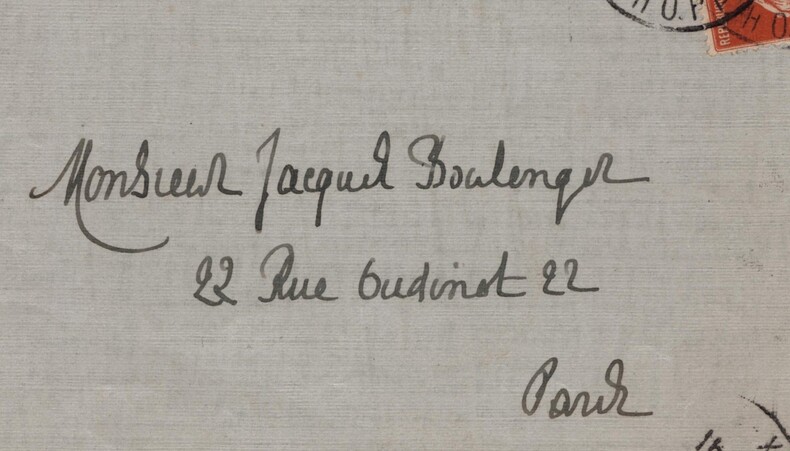 HOP
HO
REP
Monsieur Jacques Boulenger
22 Rue Oudinot 22
Paris
16